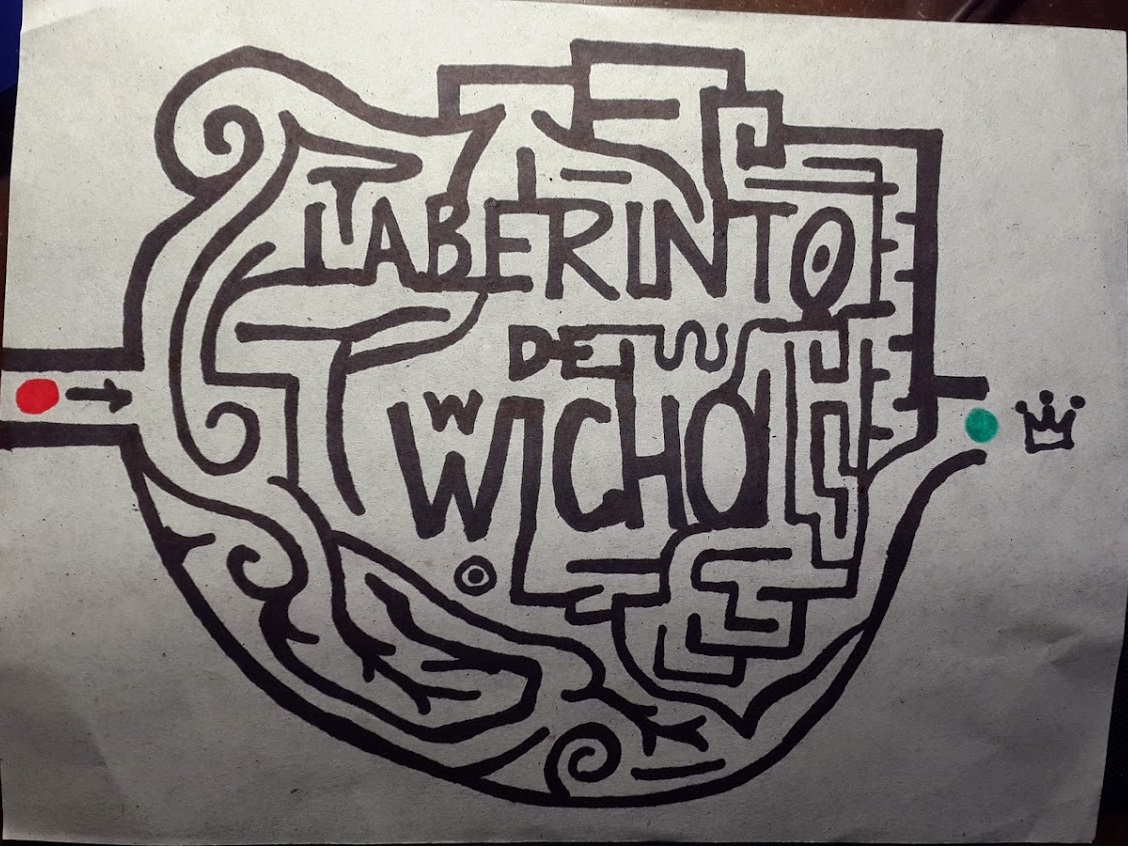 LABERINTO
DE
WICHO